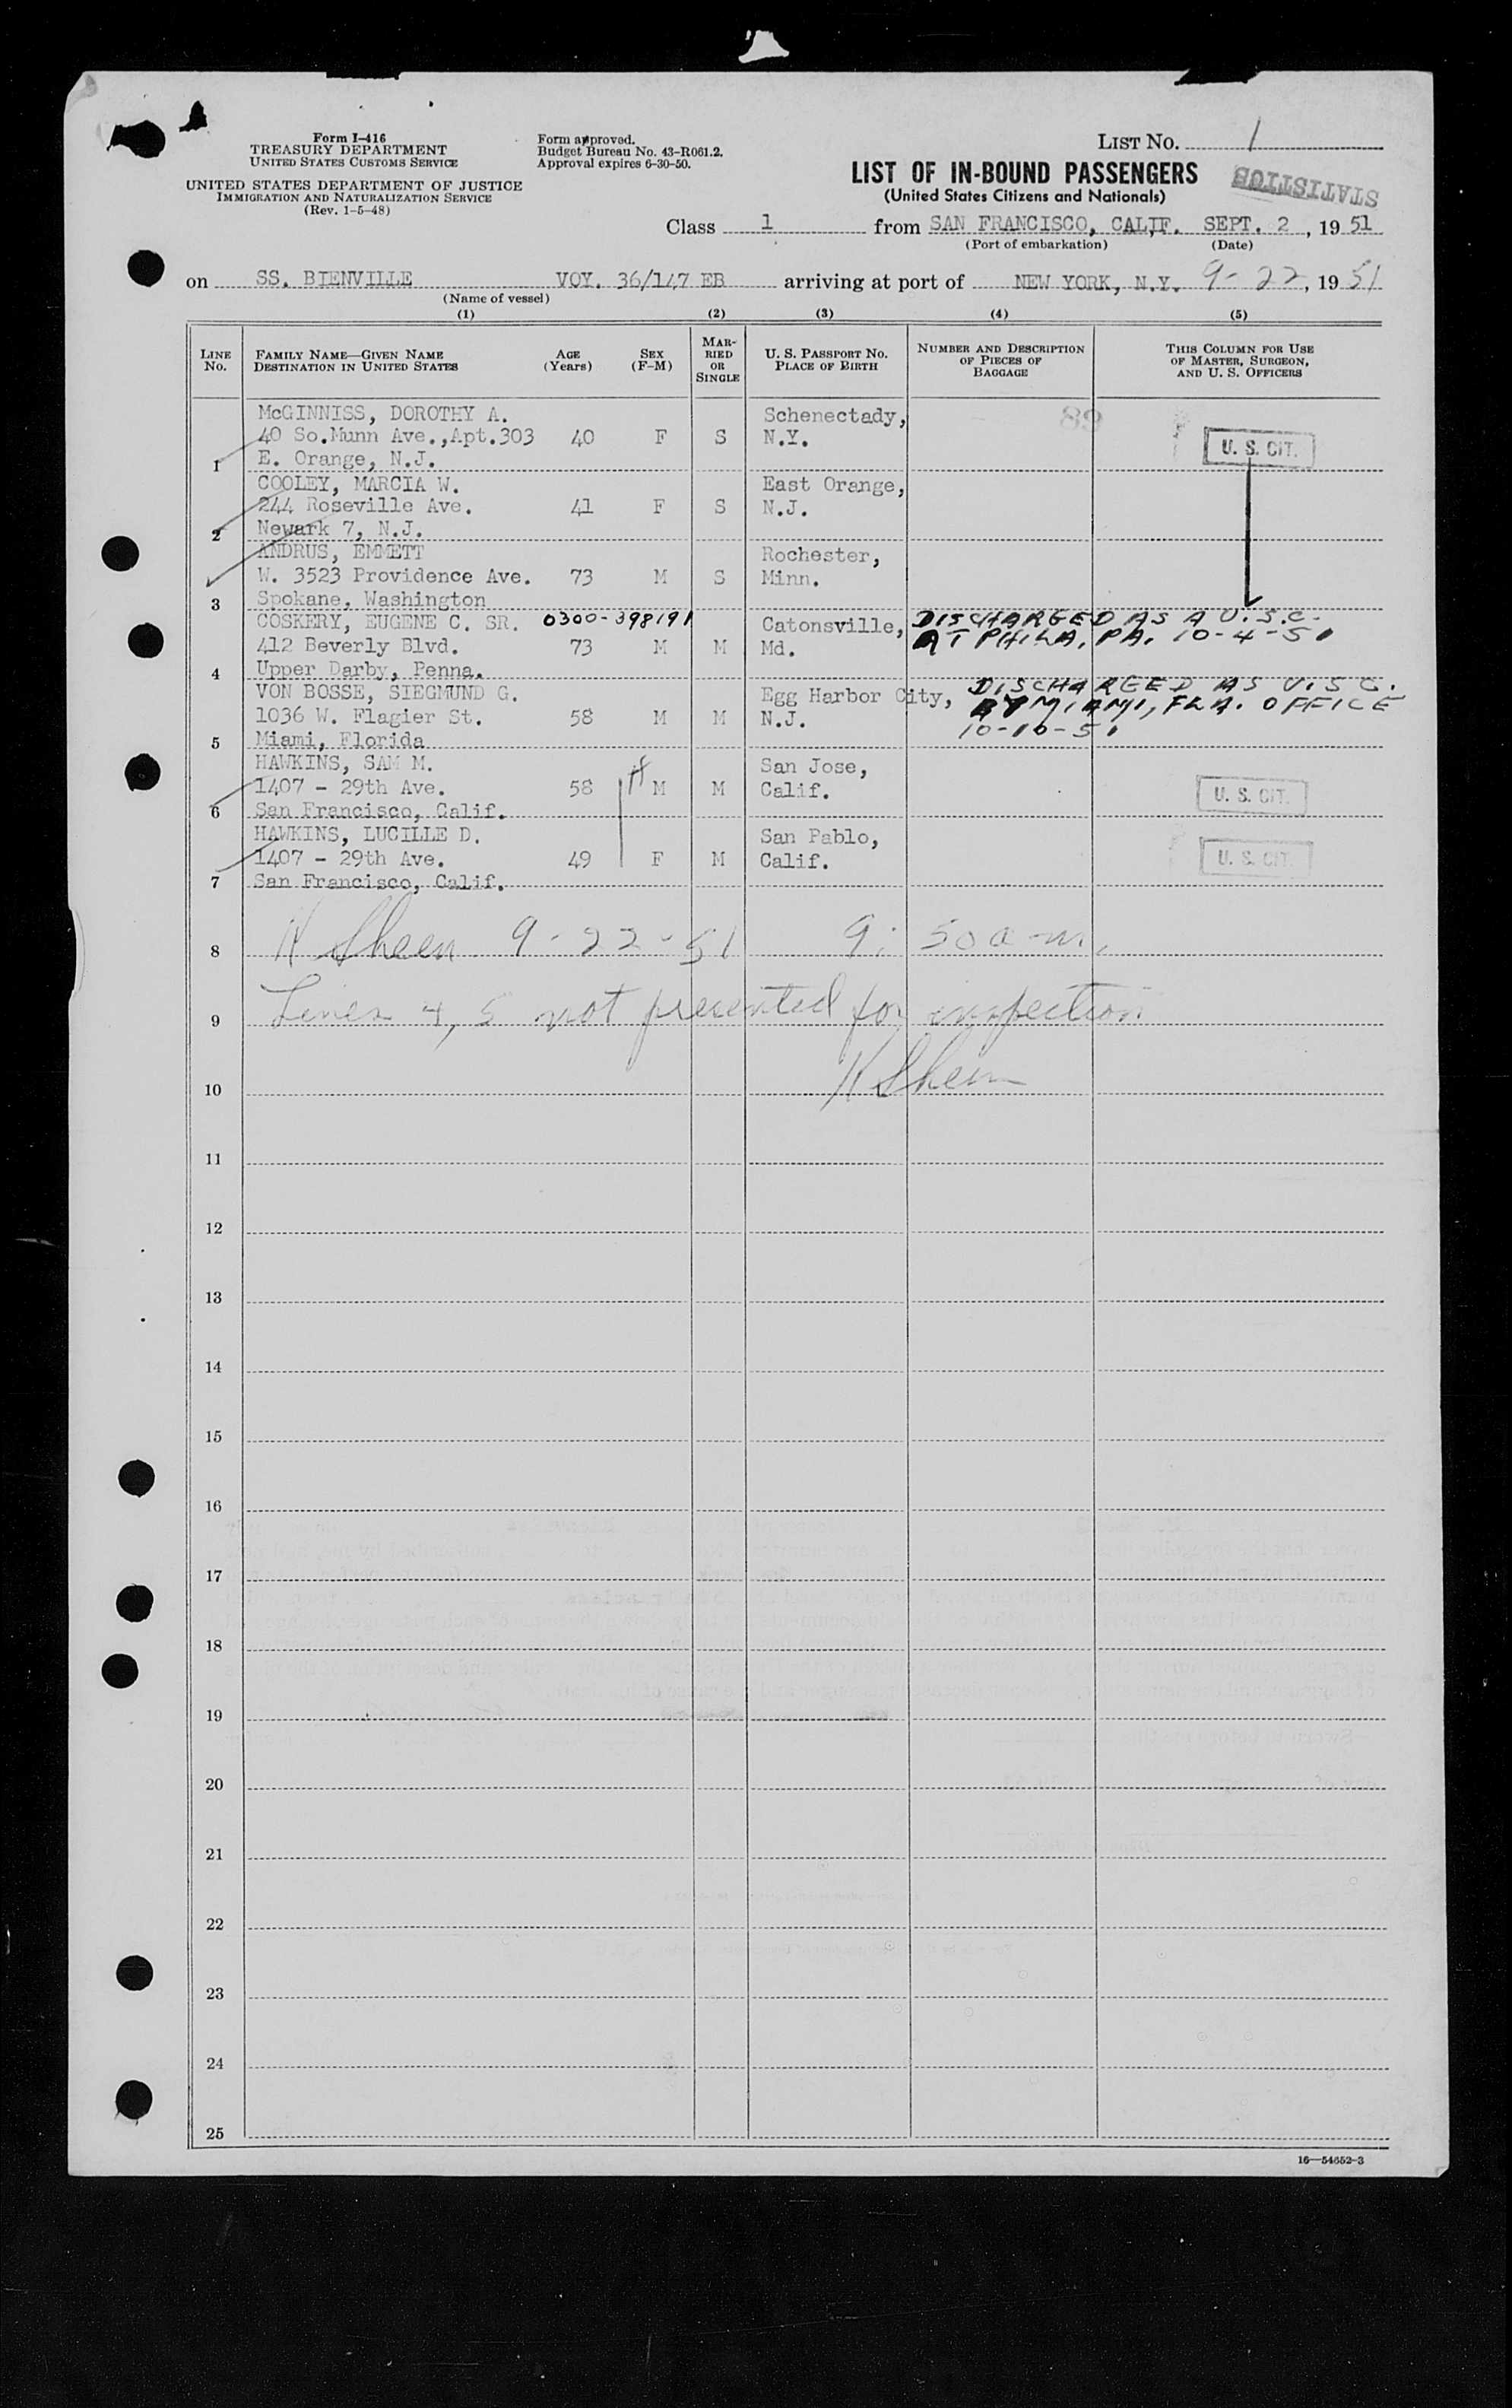 Form I-416
TREASURY DEPARTMENT
UNITED STATES CUSTOMS SERVICE
UNITED STATES DEPARTMENT OF JUSTICE
IMMIGRATION AND NATURALIZATION SERVICE
(Rev. 1-5-48)
Form approved.
Budget Bureau No. 43-R061.2.
Approval expires 6-30-50.
LIST NO. 1
LIST OF IN-BOUND PASSENGERS
(United States Citizens and Nationals)
STATISTICS
Class 1 from SAN FRANCISCO, CALIF. SEPT. 2, 19 51
(Port of embarkation) (Date)
on SS. BIENVILLE VOY. 36/147 EB arriving at port of NEW YORK, N.Y. 9-22, 19 51
(Name of vessel)
(1) (2) (3) (4) (5)
LINE No.
FAMILY NAME—GIVEN NAME
DESTINATION IN UNITED STATES
AGE (Years)
SEX (F-M)
MARRIED OR SINGLE
U. S. PASSPORT NO.
PLACE OF BIRTH
NUMBER AND DESCRIPTION OF PIECES OF BAGGAGE
THIS COLUMN FOR USE OF MASTER, SURGEON, AND U. S. OFFICERS
McGINNISS, DOROTHY A. Schenectady, 89
40 So.Munn Ave.,Apt.303 40 F S N.Y. U. S. CIT.
1 E. Orange, N.J.
COOLEY, MARCIA W. East Orange,
244 Roseville Ave. 41 F S N.J.
2 Newark 7, N.J.
ANDRUS, EMMETT Rochester,
W. 3523 Providence Ave. 73 M S Minn.
3 Spokane, Washington
COSKERY, EUGENE C. SR. 0300-398191 Catonsville, DISCHARGED AS A U.S.C.
412 Beverly Blvd. 73 M M Md. AT PHILA, PA. 10-4-51
4 Upper Darby, Penna.
VON BOSSE, SIEGMUND G. Egg Harbor City, DISCHARGED AS U.S.C.
1036 W. Flagier St. 58 M M N.J. BY MIAMI, FLA. OFFICE
5 Miami, Florida 10-10-51
HAWKINS, SAM M. San Jose,
1407 - 29th Ave. 58 M M Calif. U. S. CIT.
6 San Francisco, Calif.
HAWKINS, LUCILLE D. San Pablo,
1407 - 29th Ave. 49 F M Calif. U. S. CIT.
7 San Francisco, Calif.
8 H Sheen 9-22-51 9:50 a.m.
9 Lines 4, 5 not presented for inspection
10 H Sheen
11
12
13
14
15
16
17
18
19
20
21
22
23
24
25
16—54652-3